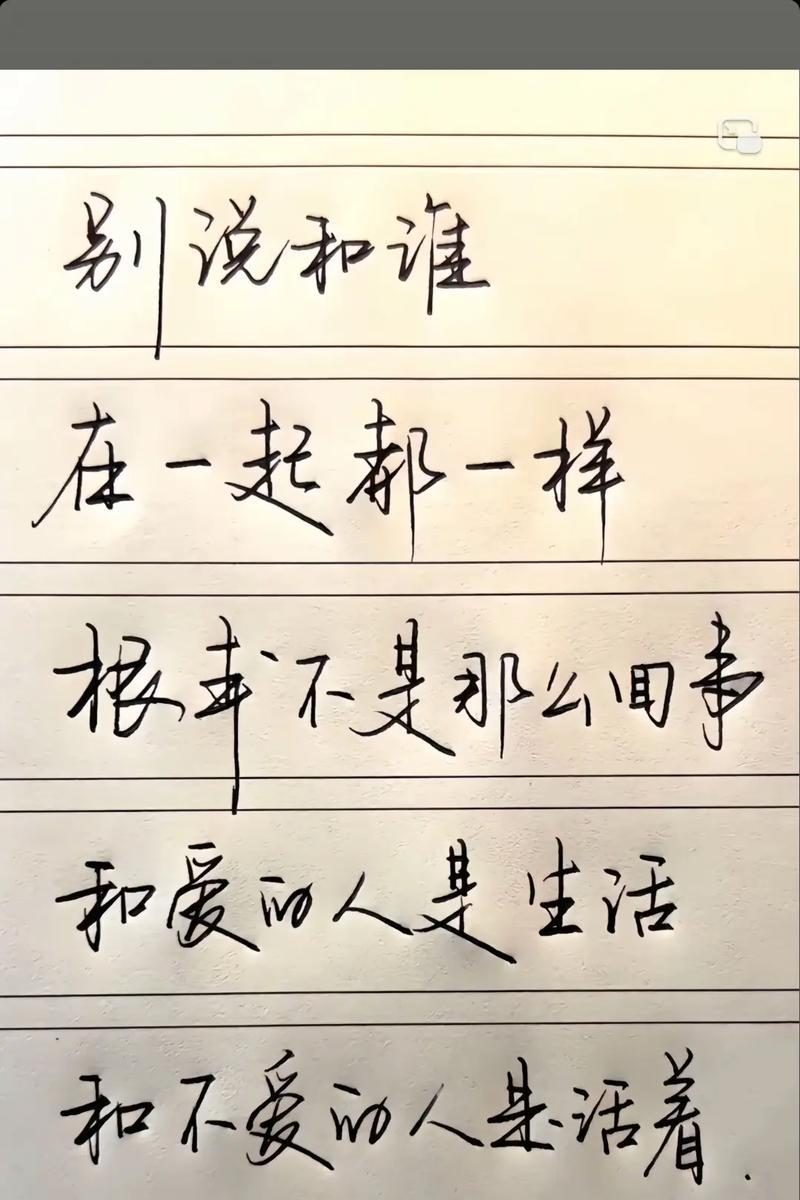 别说和谁
在一起都一样
根本不是那么回事
和爱的人是生活
和不爱的人是活着.